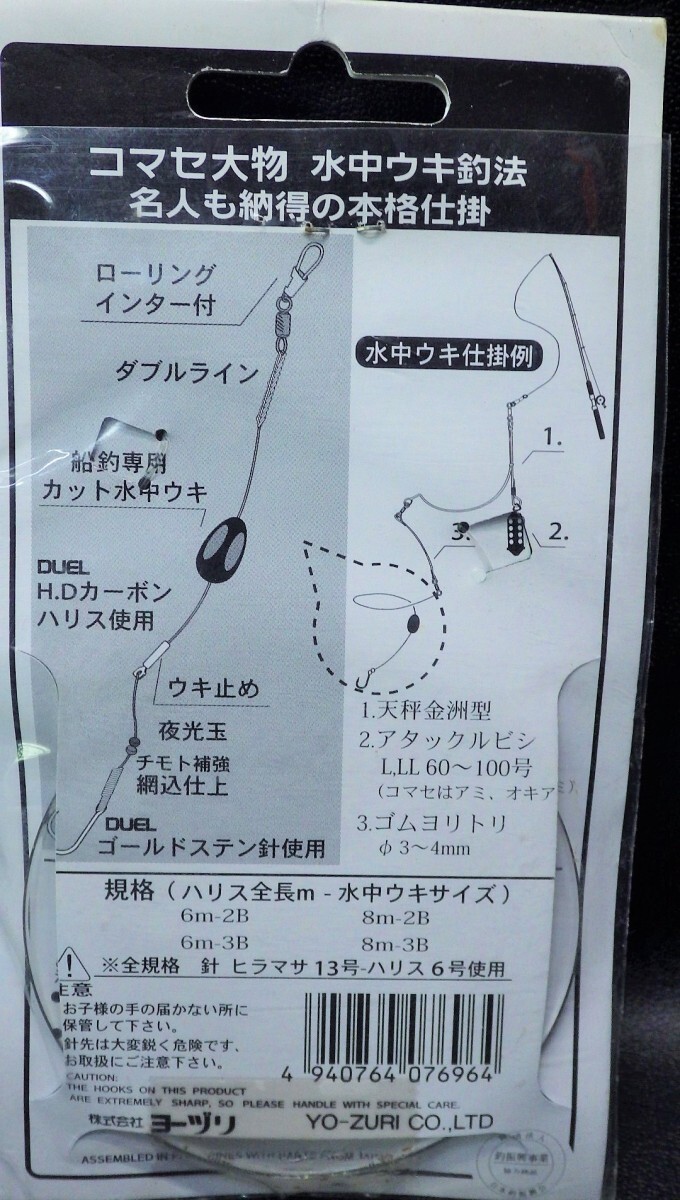 コマセ大物 水中ウキ釣法
名人も納得の本格仕掛
ローリング
インター付
ダブルライン
船釣専用
カット水中ウキ
DUEL
H.Dカーボン
ハリス使用
ウキ止め
夜光玉
チモト補強
網込仕上
DUEL
ゴールドステン針使用
水中ウキ仕掛例
1.
2.
3.
1.天秤金洲型
2.アタックルビシ
L,LL 60〜100号
(コマセはアミ、オキアミ)
3.ゴムヨリトリ
φ 3〜4mm
規格 ( ハリス全長m - 水中ウキサイズ )
6m-2B 8m-2B
6m-3B 8m-3B
※全規格 針 ヒラマサ 13号-ハリス 6号使用
注意
お子様の手の届かない所に
保管して下さい。
針先は大変鋭く危険です、
お取扱にご注意下さい。
CAUTION:
THE HOOKS ON THIS PRODUCT
ARE EXTREMELY SHARP, SO PLEASE HANDLE WITH SPECIAL CARE.
4 940764 076964
株式会社 ヨーヅリ YO-ZURI CO.,LTD
ASSEMBLED IN
釣振興事業